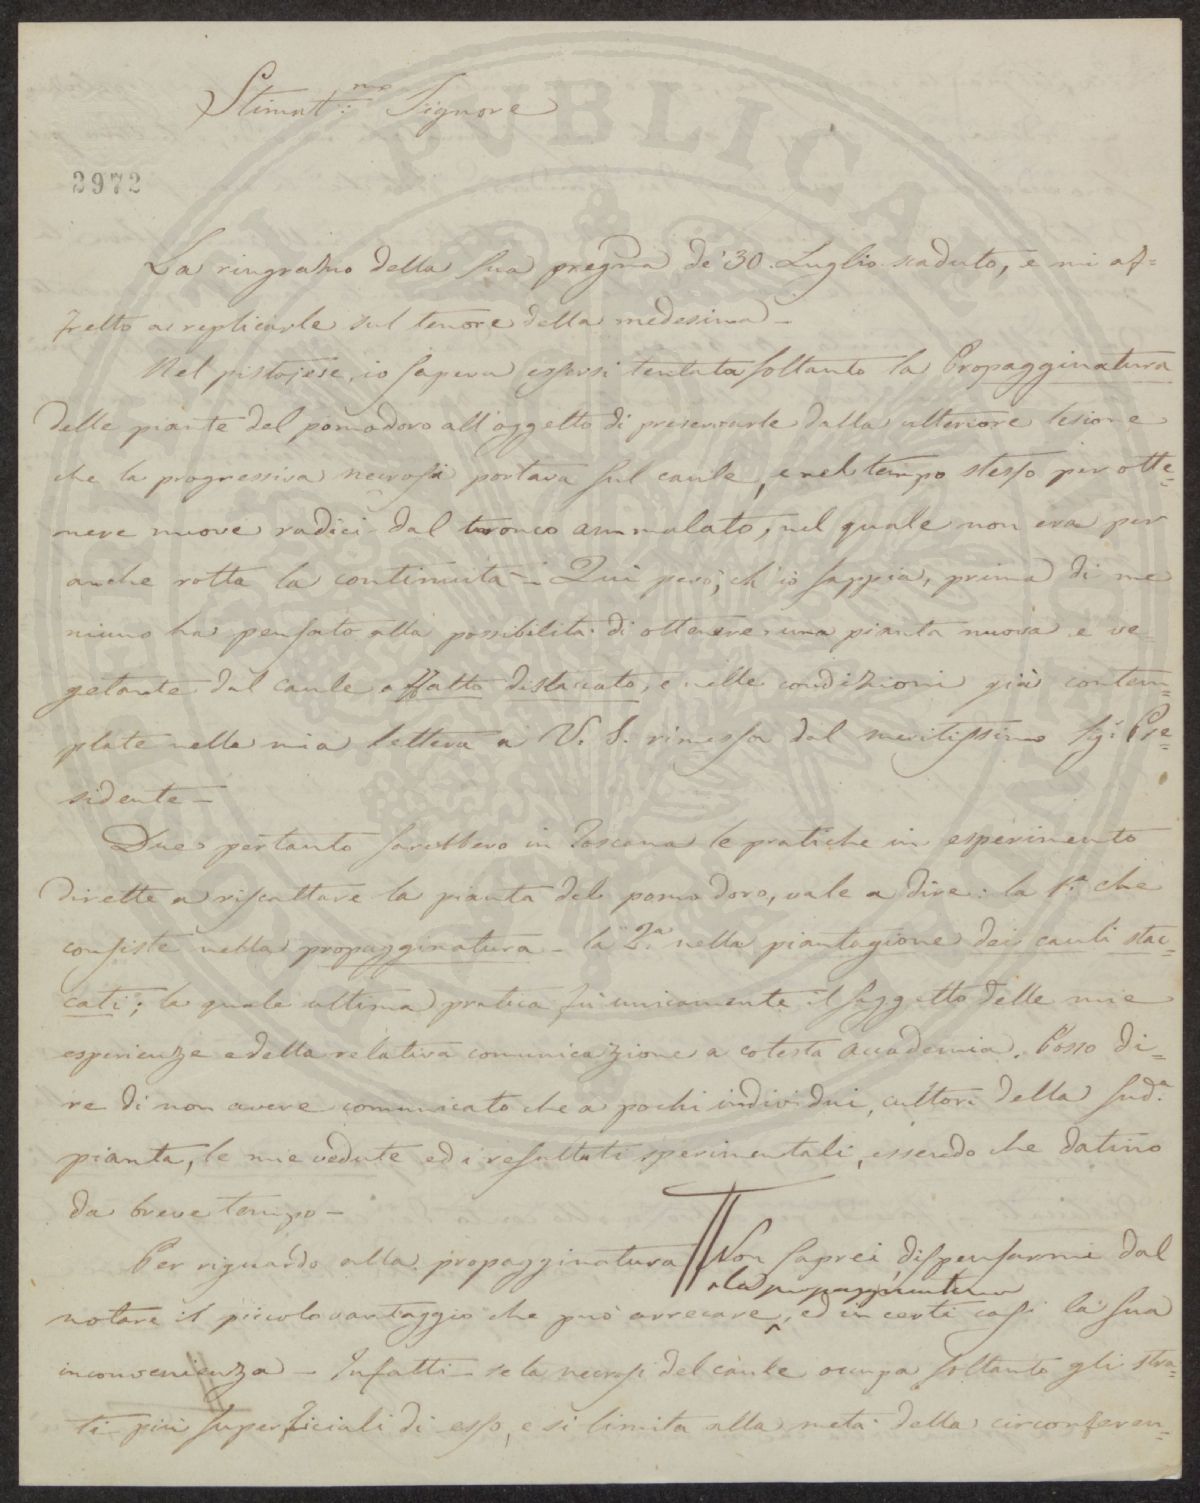 Stimat:mo Signore
2972
La ringrazio della sua pregma de' 30. Luglio scaduto, e mi af=
fretto a replicarle sul tenore della medesima –
Nel pistojese, io sapeva essersi tentata soltanto la Propagginatura
delle piante del pomodoro all'oggetto di preservarle dalla ulteriore lesione
che la progressiva necrosi portava sul caule, e nel tempo stesso per otte=
nere nuove radici dal tronco ammalato, nel quale non era per
anche rotta la continuità – Qui però, ch'io sappia, prima di me
niuno ha pensato alla possibilità di ottenere una pianta nuova e ve=
getante dal caule affatto distaccato, e nelle condizioni già contem=
plate nella mia lettera a V. S. rimessa dal meritissimo Sig: Pre=
sidente –
Due pertanto sarebbero in Toscana le pratiche in esperimento
dirette a riscattare la pianta del pomodoro, vale a dire: la 1.a che
consiste nella propagginatura – la 2.a nella piantagione dei cauli stac=
cati; la quale ultima pratica fù unicamente il soggetto delle mie
esperienze e della relativa comunicazione a cotesta Accademia. Posso di=
re di non avere comunicato che a pochi individui, cultori della sud.a
pianta, le mie vedute ed i resultati sperimentali, essendo che datino
da breve tempo –
Per riguardo alla propagginatura Non saprei dispensarmi dal
la propagginatura
notare il piccolo vantaggio che può arrecare, ed in certi casi la sua
inconvenienza – Infatti – se la necrosi del caule occupa soltanto gli stra=
ti più superficiali di esso, e si limita alla metà della circonferen=